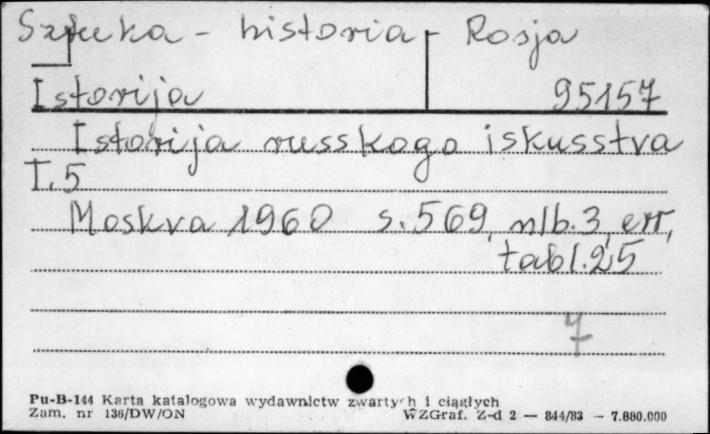 Sztuka - historia - Rosja
Istorija 95157
Istorija russkogo iskusstva
T.5
Moskva 1960 s.569, nlb.3, err,
tabl.25
7
Pu-B-144 Karta katalogowa wydawnictw zwartych i ciągłych
Zam. nr 136/DW/ON WZGraf. Z-d 2 — 844/83 — 7.880.000